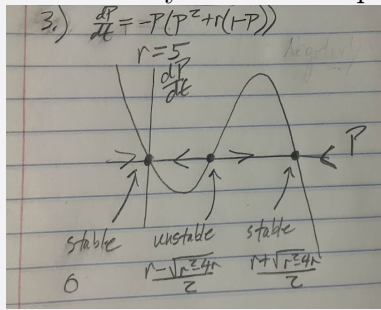 3.) dP/dt = -P(P²+r(1-P))
r=5
dP/dt
P
stable unstable stable
0 r-√r²-4r/2 r+√r²-4r/2